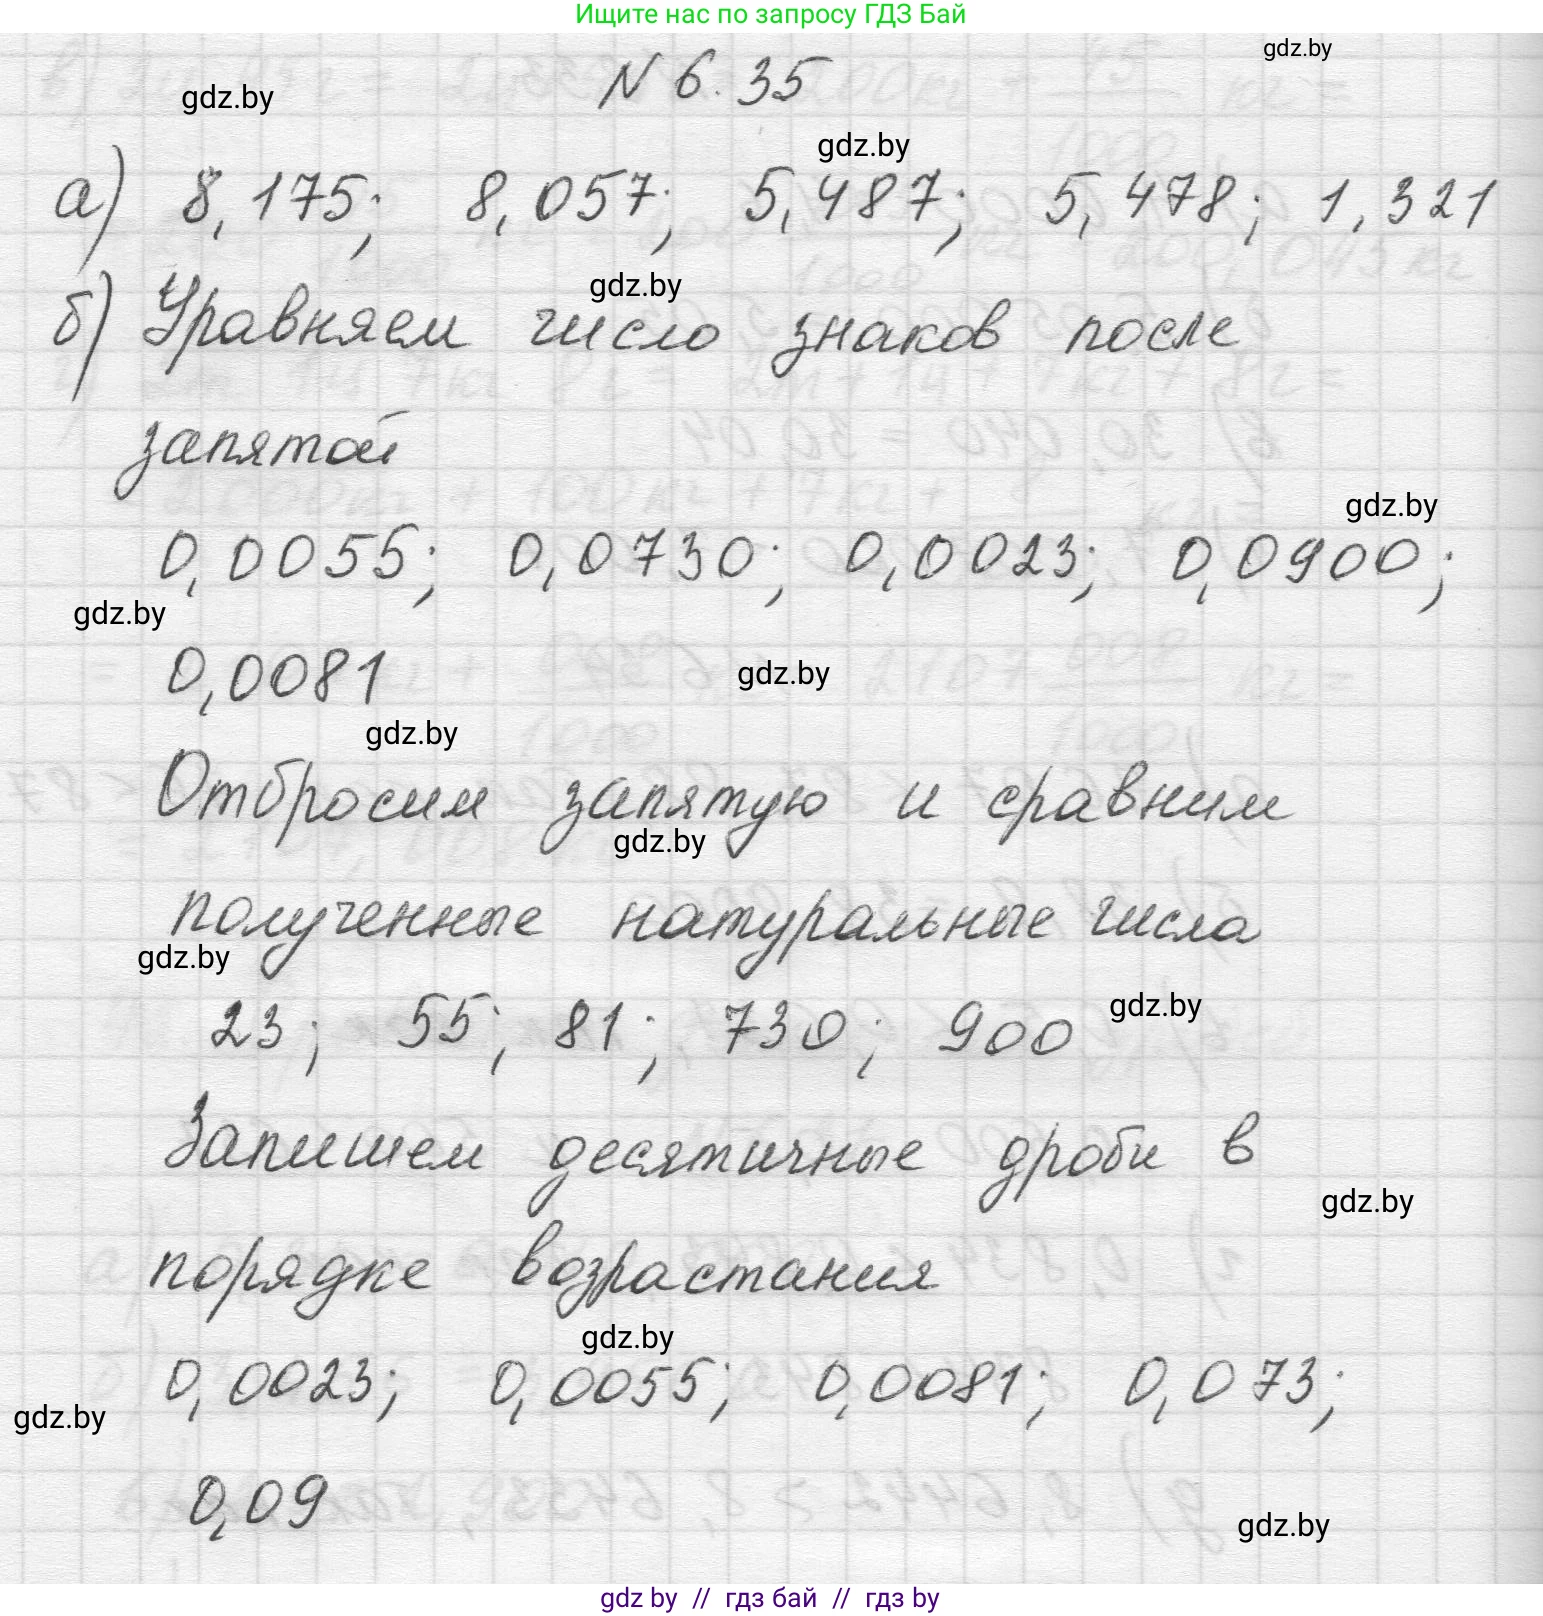 Ищите нас по запросу ГДЗ Бай
gdz.by
N 6.35
gdz.by
gdz.by
а) 8,175; 8,057; 5,487; 5,478; 1,321
gdz.by
б) Уравняем число знаков после
запятой
gdz.by
0,0055; 0,0730; 0,0023; 0,0900;
gdz.by
0,0081
gdz.by
gdz.by
Отбросим запятую и сравним
gdz.by
полученные натуральные числа
gdz.by
23; 55; 81; 730; 900
gdz.by
Запишем десятичные дроби в
gdz.by
порядке возрастания
gdz.by
0,0023; 0,0055; 0,0081; 0,073;
gdz.by
0,09
gdz.by
gdz by // гдз бай // гдз by